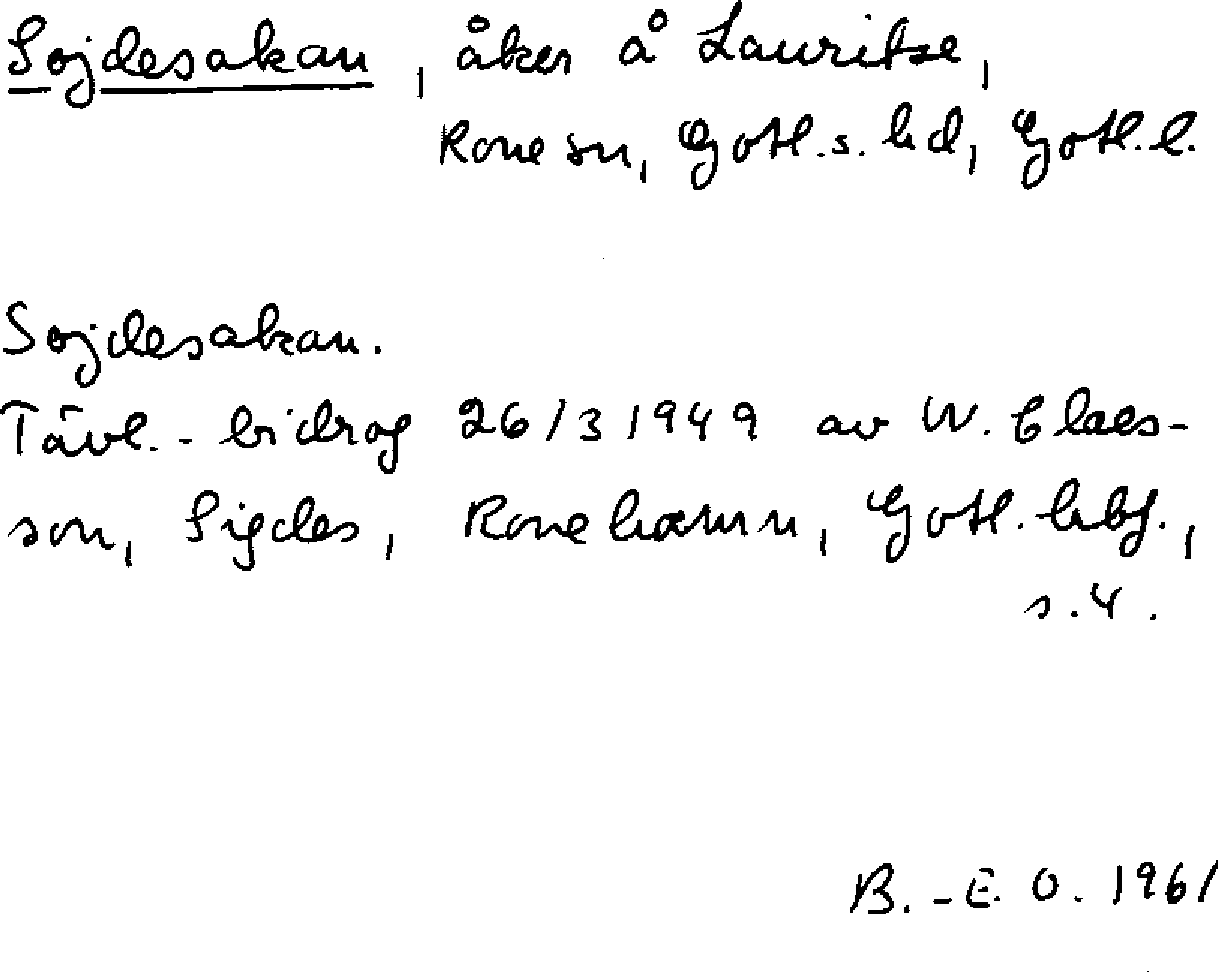 Sojdesakan, åker å Lauritse,
Rone sn, Gotl.s. hd, Gotl.l.
Sojdesakan.
Tävl.-bidrag 26/3 1949 av W. Claes-
son, Sigdes, Ronehamn, Gotl. hbf.,
s.4.
B.-E. O. 1961